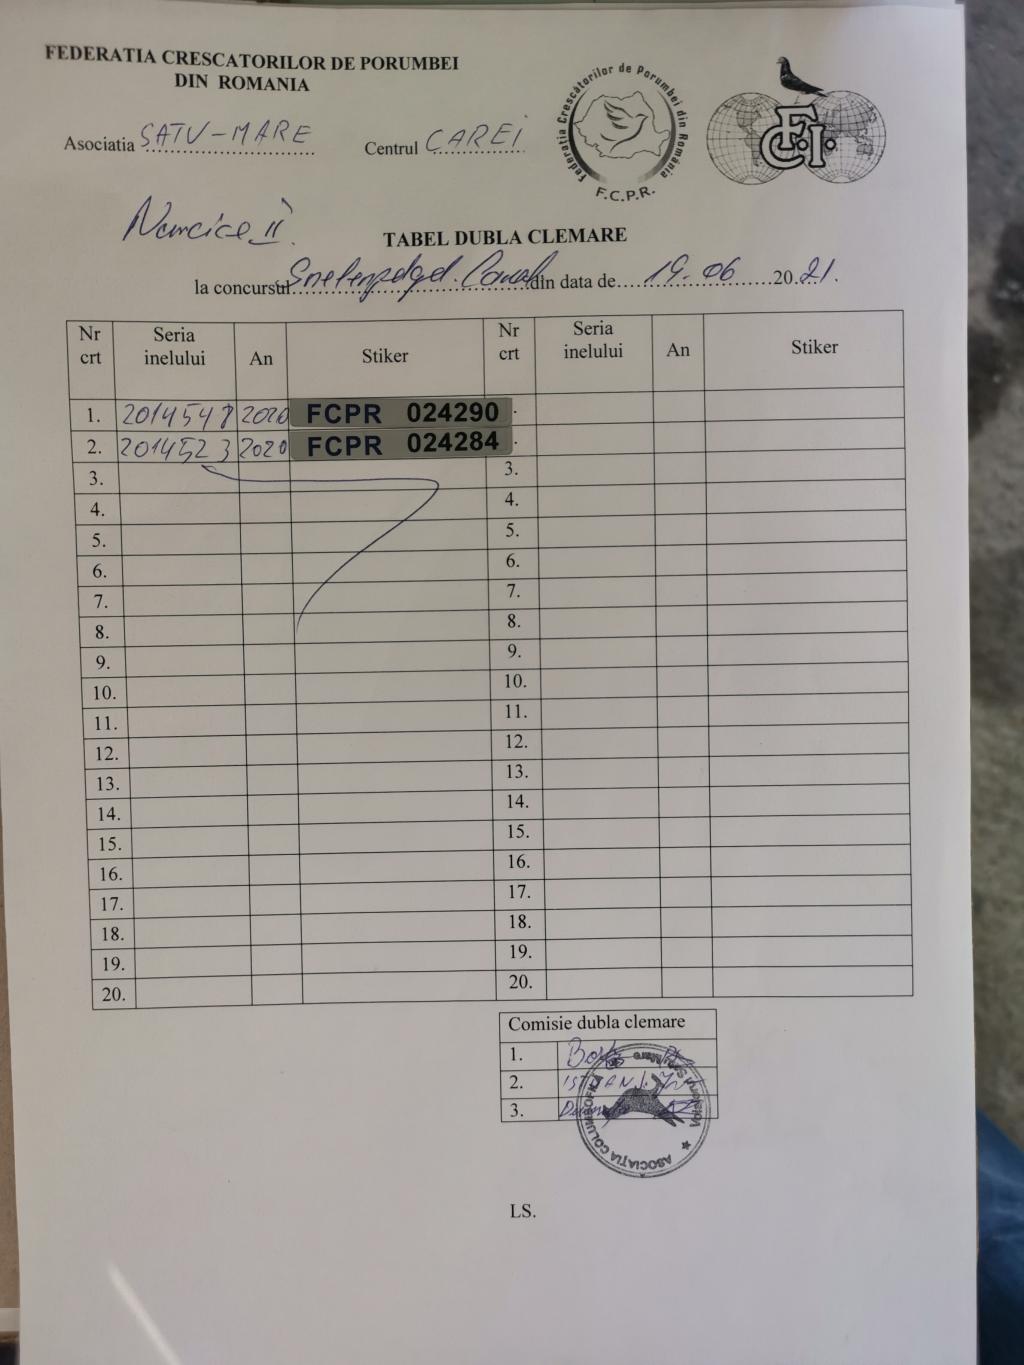 FEDERATIA CRESCATORILOR DE PORUMBEI
DIN ROMANIA
Asociatia SATU-MARE Centrul CAREI
Federatia Crescătorilor de Porumbei din România
F.C.P.R.
F.C.I.
II
TABEL DUBLA CLEMARE
la concursul din data de 19.06 2021.
Nr crt Seria inelului An Stiker Nr crt Seria inelului An Stiker
1. 2014548 2020 FCPR 024290
2. 2014523 2020 FCPR 024284
3. 3.
4. 4.
5. 5.
6. 6.
7. 7.
8. 8.
9. 9.
10. 10.
11. 11.
12. 12.
13. 13.
14. 14.
15. 15.
16. 16.
17. 17.
18. 18.
19. 19.
20. 20.
Comisie dubla clemare
1.
2.
3.
ASOCIAȚIA COLUMBOFILĂ
LS.